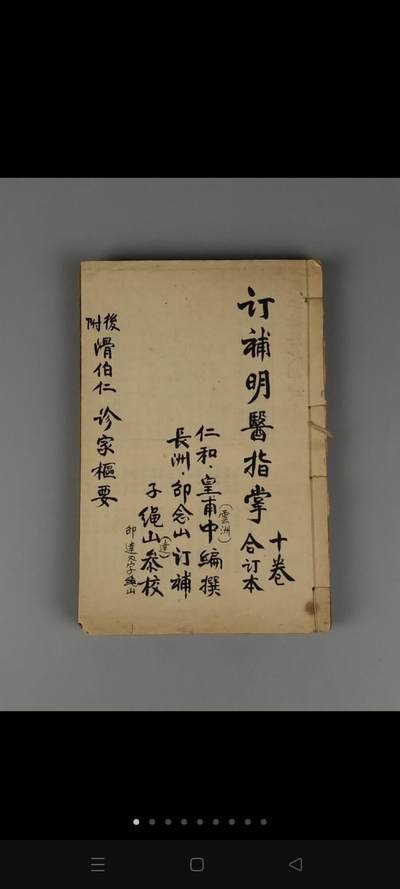 订補明醫指掌
十卷
合订本
仁和·皇甫中(雲洲)编撰
長洲·邵念山订補
子绳山(達)参校
邵達又字绳山
後附
滑伯仁诊家樞要